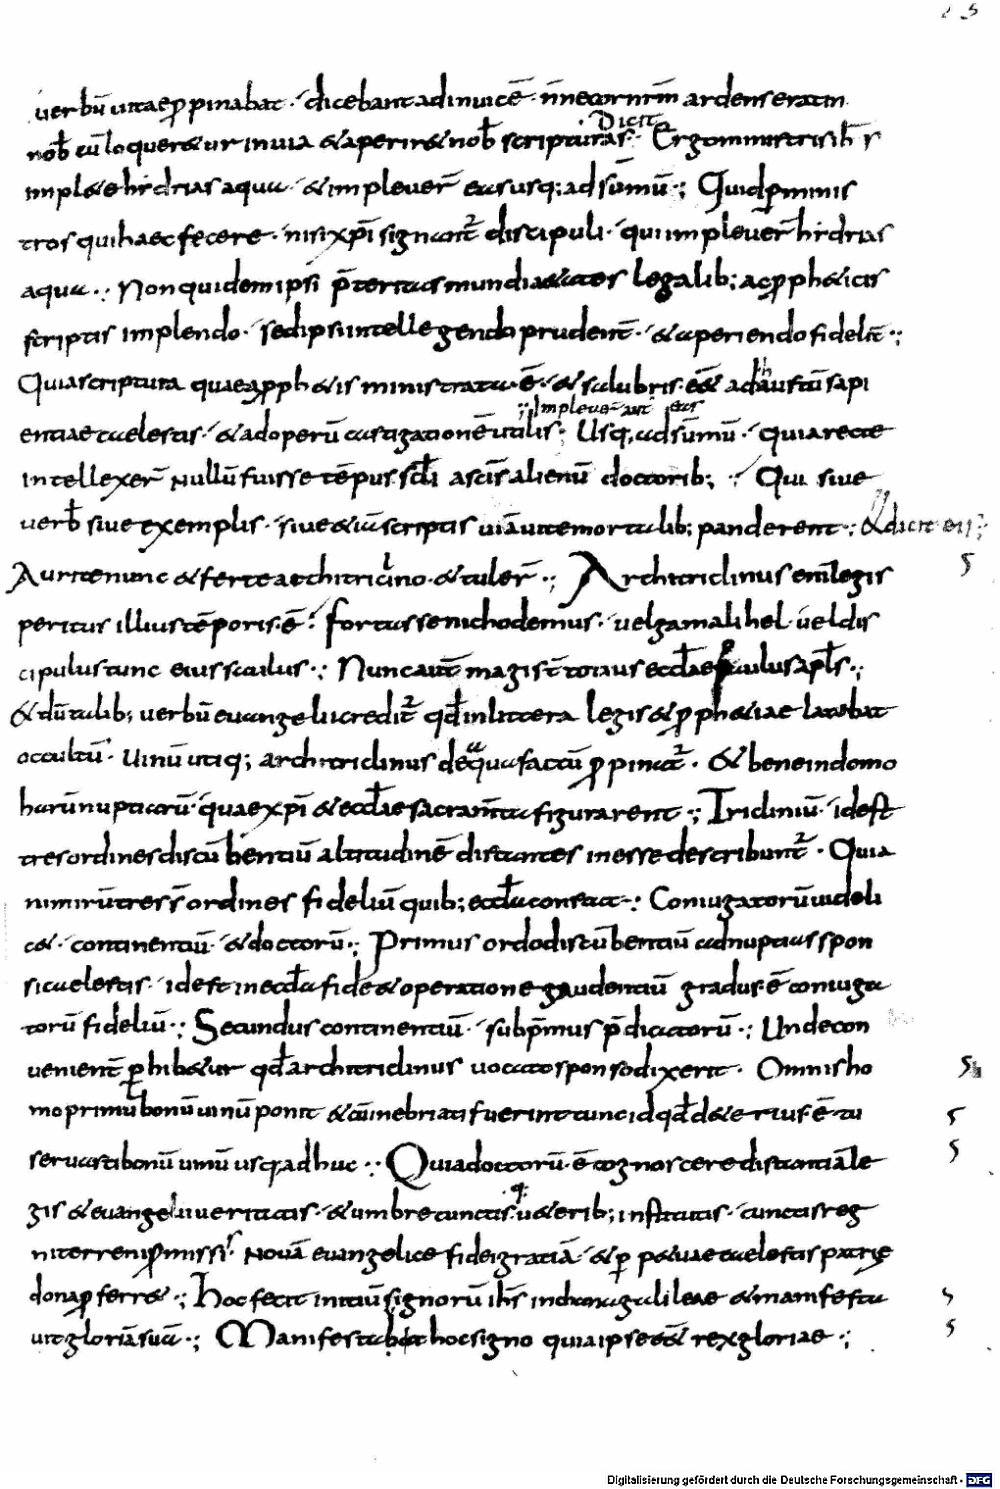 25
uerbū uitae ꝓpinabat · dicebant adinuicē · nn̄e cor nr̄m ardens erat in
nob̄ cū loqueret̄ in uia & aperir& nob̄ scripturas · Dicit Ergo ministris ih̄s
impl&e hidrias aqua · & impleuer̄ eas usq; ad summū ·; Qui ꝓ minis
tros qui haec fecere · nisi xp̄i signant̄ discipuli · qui impleuer̄ hidrias
aqua ·; Non quidem ipsi p̄teritas mundi aetates legalib; ac ꝓph&icis
scriptis implendo · sed ipsi intellegendo prudent̄ · & aperiendo fidelit̄ ·;
Quia scriptura quae a ꝓph&is ministrata ē · & salubris eēt ad haustū sapi
entiae caelestis · & ad operū castigationē utilis · Impleuer̄ aut̄ eas Usq; ad summū · quia recte
intellexer̄ nullū fuisse tēpus s̄cl̄i a sc̄is alienū doctorib; · Qui siue
uerb̄ siue exemplis · siue &iā scriptis uiā uitae mortalib; panderent · & dicit eis;
Haurite nunc & ferte architriclino · & tuler̄ ·; Architriclinus eni legis
peritus illius tēporis ē · fortasse nichodemus · uel gamalihel · uel dis
cipulus tunc eius saulus ·; Nunc aut̄ magist̄ totius eccl̄ae paulus apl̄s ·;
& dū talib; uerbū euangelii credit̄ qđ in littera legis & ꝓph&iae latebat
occultū · Uinū utiq; architriclinus de aqua factū ꝓpinat̄ · & bene in domo
harū nuptiarū · quae xp̄i & eccl̄ae sacramt̄a figurarent ·; Tricliniū · idest
tres ordines discūbentiū altitudinē distantes inesse describunt̄ · Quia
nimirū tres s̄ ordines fideliū quib; eccl̄a constat ·; Coniugatorū uideli
c& · continentiū · & doctorū ·; Primus ordo discūbentiū ad nuptias spon
si caelestis · idest in eccl̄a fide & operatione gaudentiū gradus ē coniuga
torū fideliū ·; Secundus continentiū · suꝑmus p̄dicatorū ·; Unde con
uenient̄ ꝑhib&ur qđ architriclinus uocato sponso dixerit · Omnis ho
mo primū bonū uinū ponit & cū inebriati fuerint tunc id qđ deterius ē tu
seruasti bonū uinū usq; adhuc ·; Quia doctorū ē cognoscere distantiā le
gis & euangelii ueritatis · & umbre cunctis · q; ueterib; institutis · cunctis reg
ni terreni ꝓmissis · Nouā euangelice fidei gratiā · & ꝑpetuae caelestis patrię
dona ꝓferre ·; Hoc fecit initiū signorū ih̄s in chana galileae & manifesta
uit gloriā suā ·; Manifestabat hoc signo quia ipse eēt rex gloriae ·;
Digitalisierung gefördert durch die Deutsche Forschungsgemeinschaft - DFG